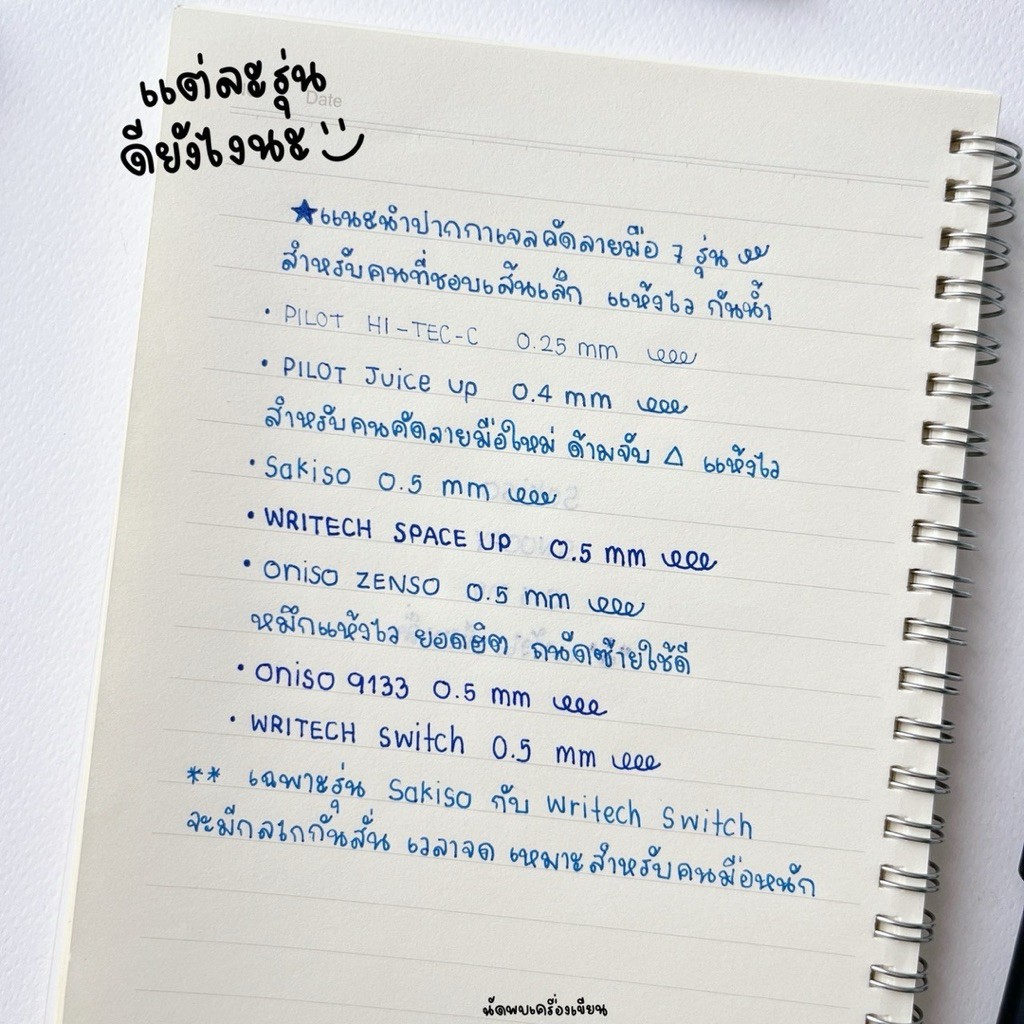 แต่ละรุ่น
ดียังไงนะ
Date
★แนะนำปากกาเจลคัดลายมือ 7 รุ่น
สำหรับคนที่ชอบเส้นเล็ก แห้งไว กันน้ำ
• PILOT HI-TEC-C 0.25 mm
• PILOT Juice up 0.4 mm
สำหรับคนคัดลายมือใหม่ ด้ามจับ △ แห้งไว
• Sakiso 0.5 mm
• WRITECH SPACE UP 0.5 mm
• Oniso ZENSO 0.5 mm
หมึกแห้งไว ยอดฮิต ถนัดซ้ายใช้ดี
• Oniso 9133 0.5 mm
• WRITECH Switch 0.5 mm
** เฉพาะรุ่น Sakiso กับ Writech Switch
จะมีกลไกกันสั่น เวลาจด เหมาะสำหรับคนมือหนัก
นัดพบเครื่องเขียน